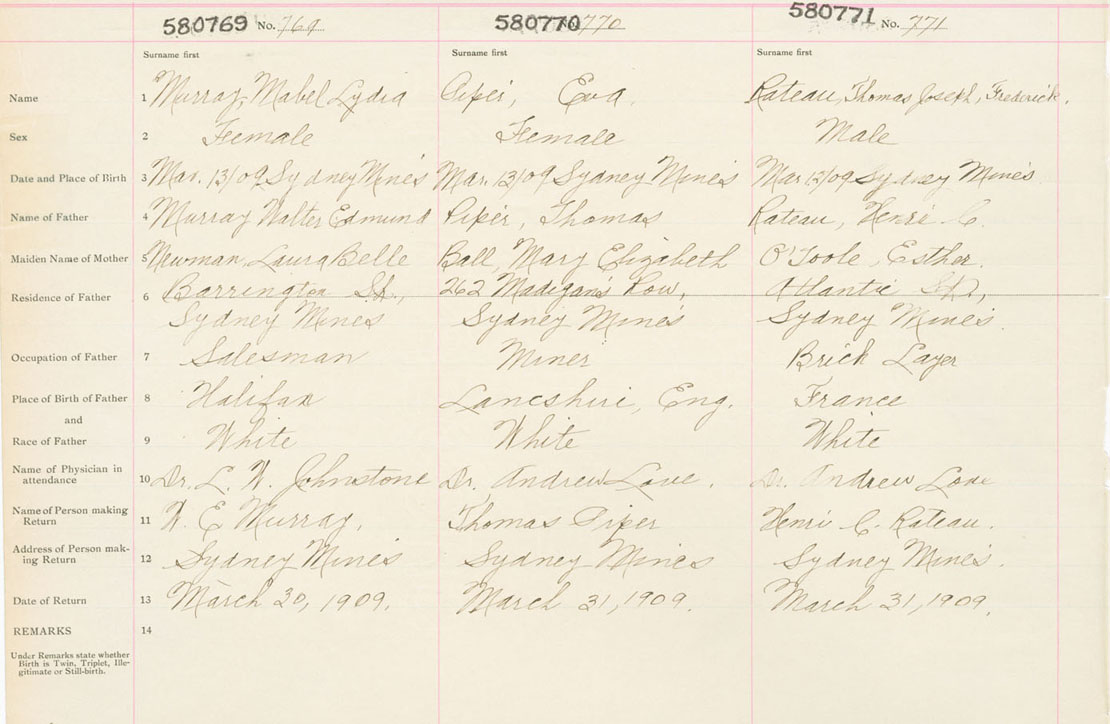 580769 No. 769 580770 No. 770 580771 No. 771
Surname first Surname first Surname first
Name 1 Murray, Mabel Lydia Piper, Eva. Rateau, Thomas Joseph, Frederick.
Sex 2 Female Female Male
Date and Place of Birth 3 Mar. 13/09 Sydney Mines Mar. 12/09 Sydney Mines Mar 12/09 Sydney Mines
Name of Father 4 Murray Walter Edmund Piper, Thomas Rateau, Henri C.
Maiden Name of Mother 5 Newman, Laura Belle Ball, Mary Elizabeth O'Toole, Esther.
Residence of Father 6 Barrington St., 262 Madigans Row, Atlantic St.,
Sydney Mines Sydney Mines Sydney Mines.
Occupation of Father 7 Salesman Miner Brick Layer
Place of Birth of Father 8 Halifax Lancshire, Eng. France
and
Race of Father 9 White White White
Name of Physician in
attendance 10 Dr. L. W. Johnstone Dr. Andrew Love. Dr. Andrew Love
Name of Person making
Return 11 W. E Murray. Thomas Piper Henri C. Rateau.
Address of Person mak-
ing Return 12 Sydney Mines Sydney Mines Sydney Mines.
Date of Return 13 March 30, 1909. March 31, 1909. March 31, 1909.
REMARKS 14
Under Remarks state whether
Birth is Twin, Triplet, Ille-
gitimate or Still-birth.